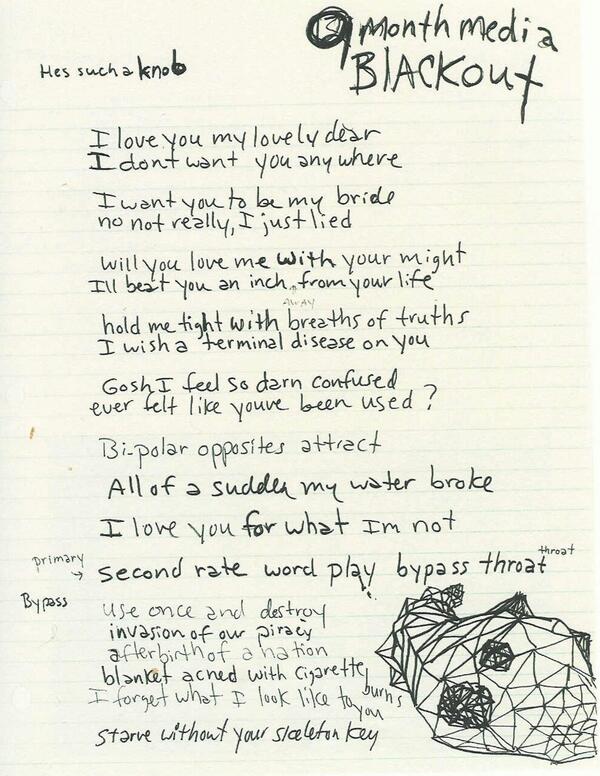 9 Month Media
BLACKOUT
Hes such a knob
I love you my lovely dear
I dont want you anywhere
I want you to be my bride
no not really, I just lied
will you love me with your might
Ill beat you an inch from your life
away
hold me tight with breaths of truths
I wish a terminal disease on you
Gosh I feel so darn confused
ever felt like youve been used?
Bi-polar opposites attract
All of a sudden my water broke
I love you for what Im not
primary → second rate word play bypass throat throat
Bypass
use once and destroy
invasion of our piracy
afterbirth of a nation
blanket acned with cigarette burns
I forget what I look like to you
starve without your skeleton key